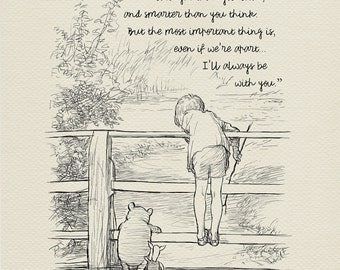 and smarter than you think.
But the most important thing is,
even if we're apart...
I'll always be
with you."